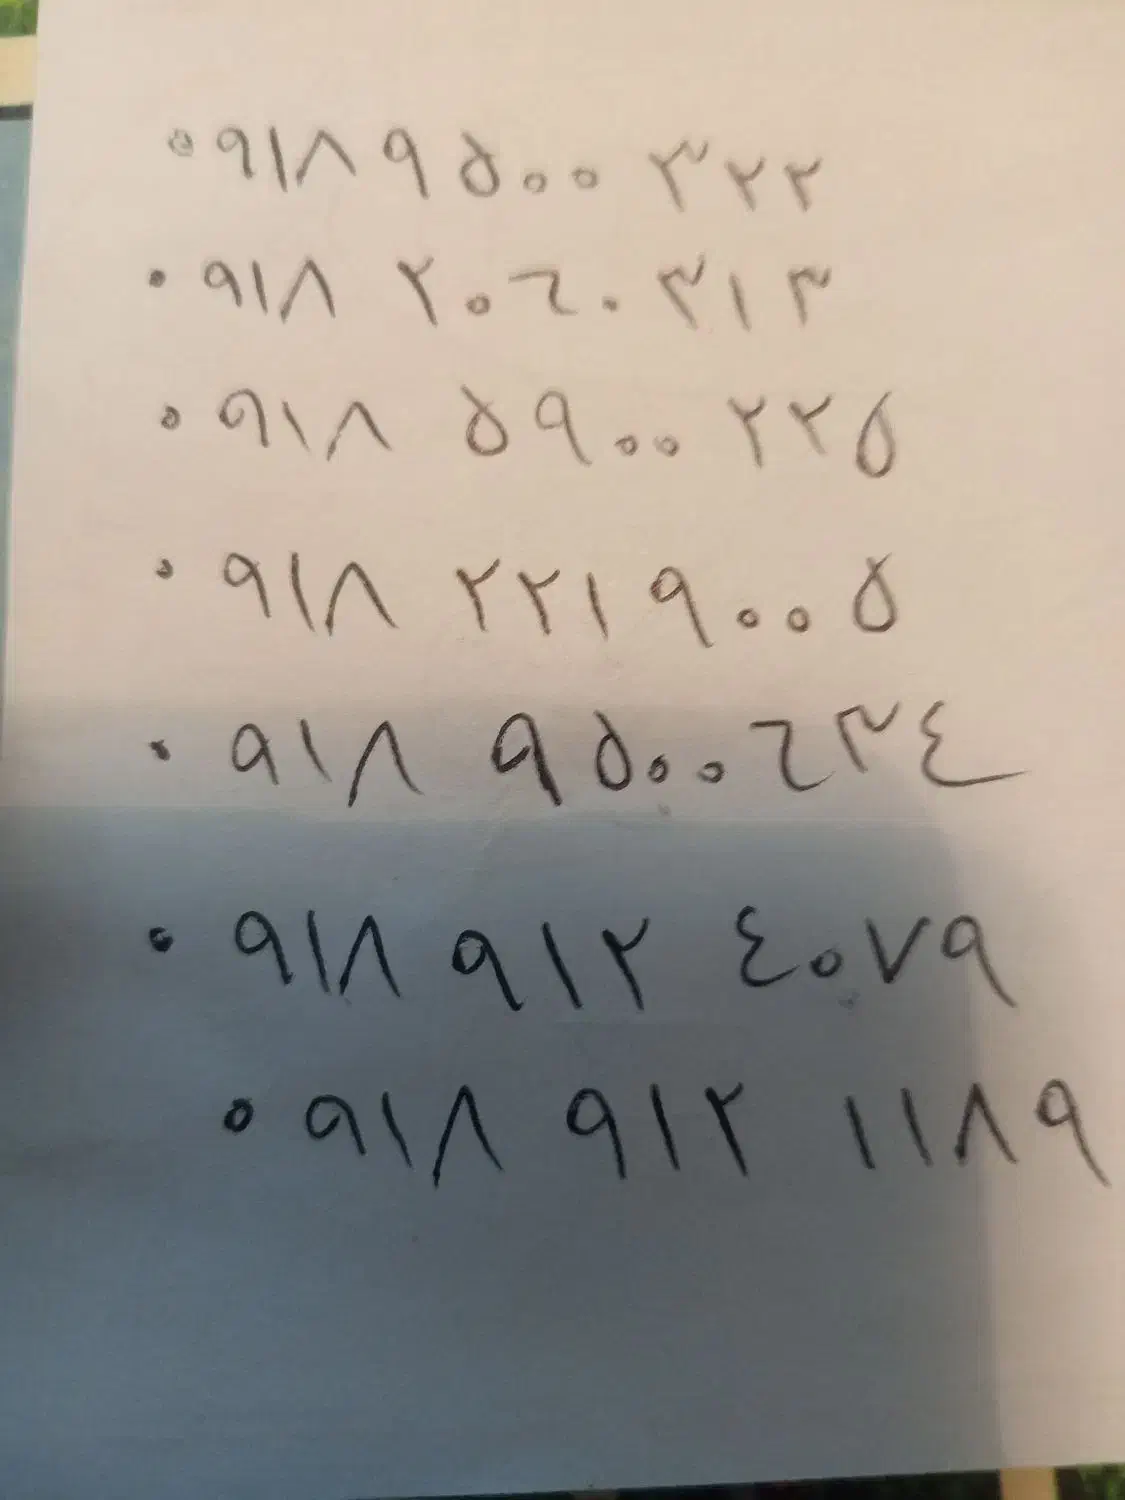 ۰۹۱۸۹۵۰۰۳۲۲
۰۹۱۸ ۲۰۶۰ ۳۱۳
۰۹۱۸ ۵۹۰۰ ۲۲۵
۰۹۱۸ ۲۲۱۹۰۰۵
۰۹۱۸ ۹۵۰۰۶۳٤
۰۹۱۸ ۹۱۲ ٤۰۷۹
۰۹۱۸ ۹۱۲ ۱۱۸۹